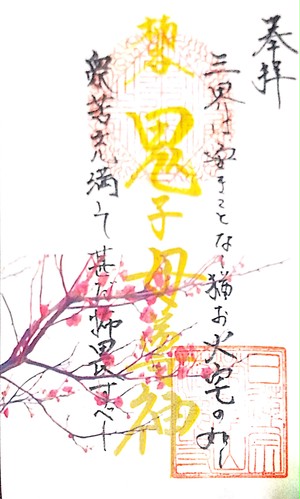 奉拝
三界は安きことなく猶お火宅の如し
鬼子母尊神
衆苦充満して甚だ怖畏すべし